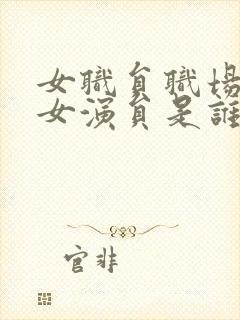 女職員職場
女演員是誰
官非